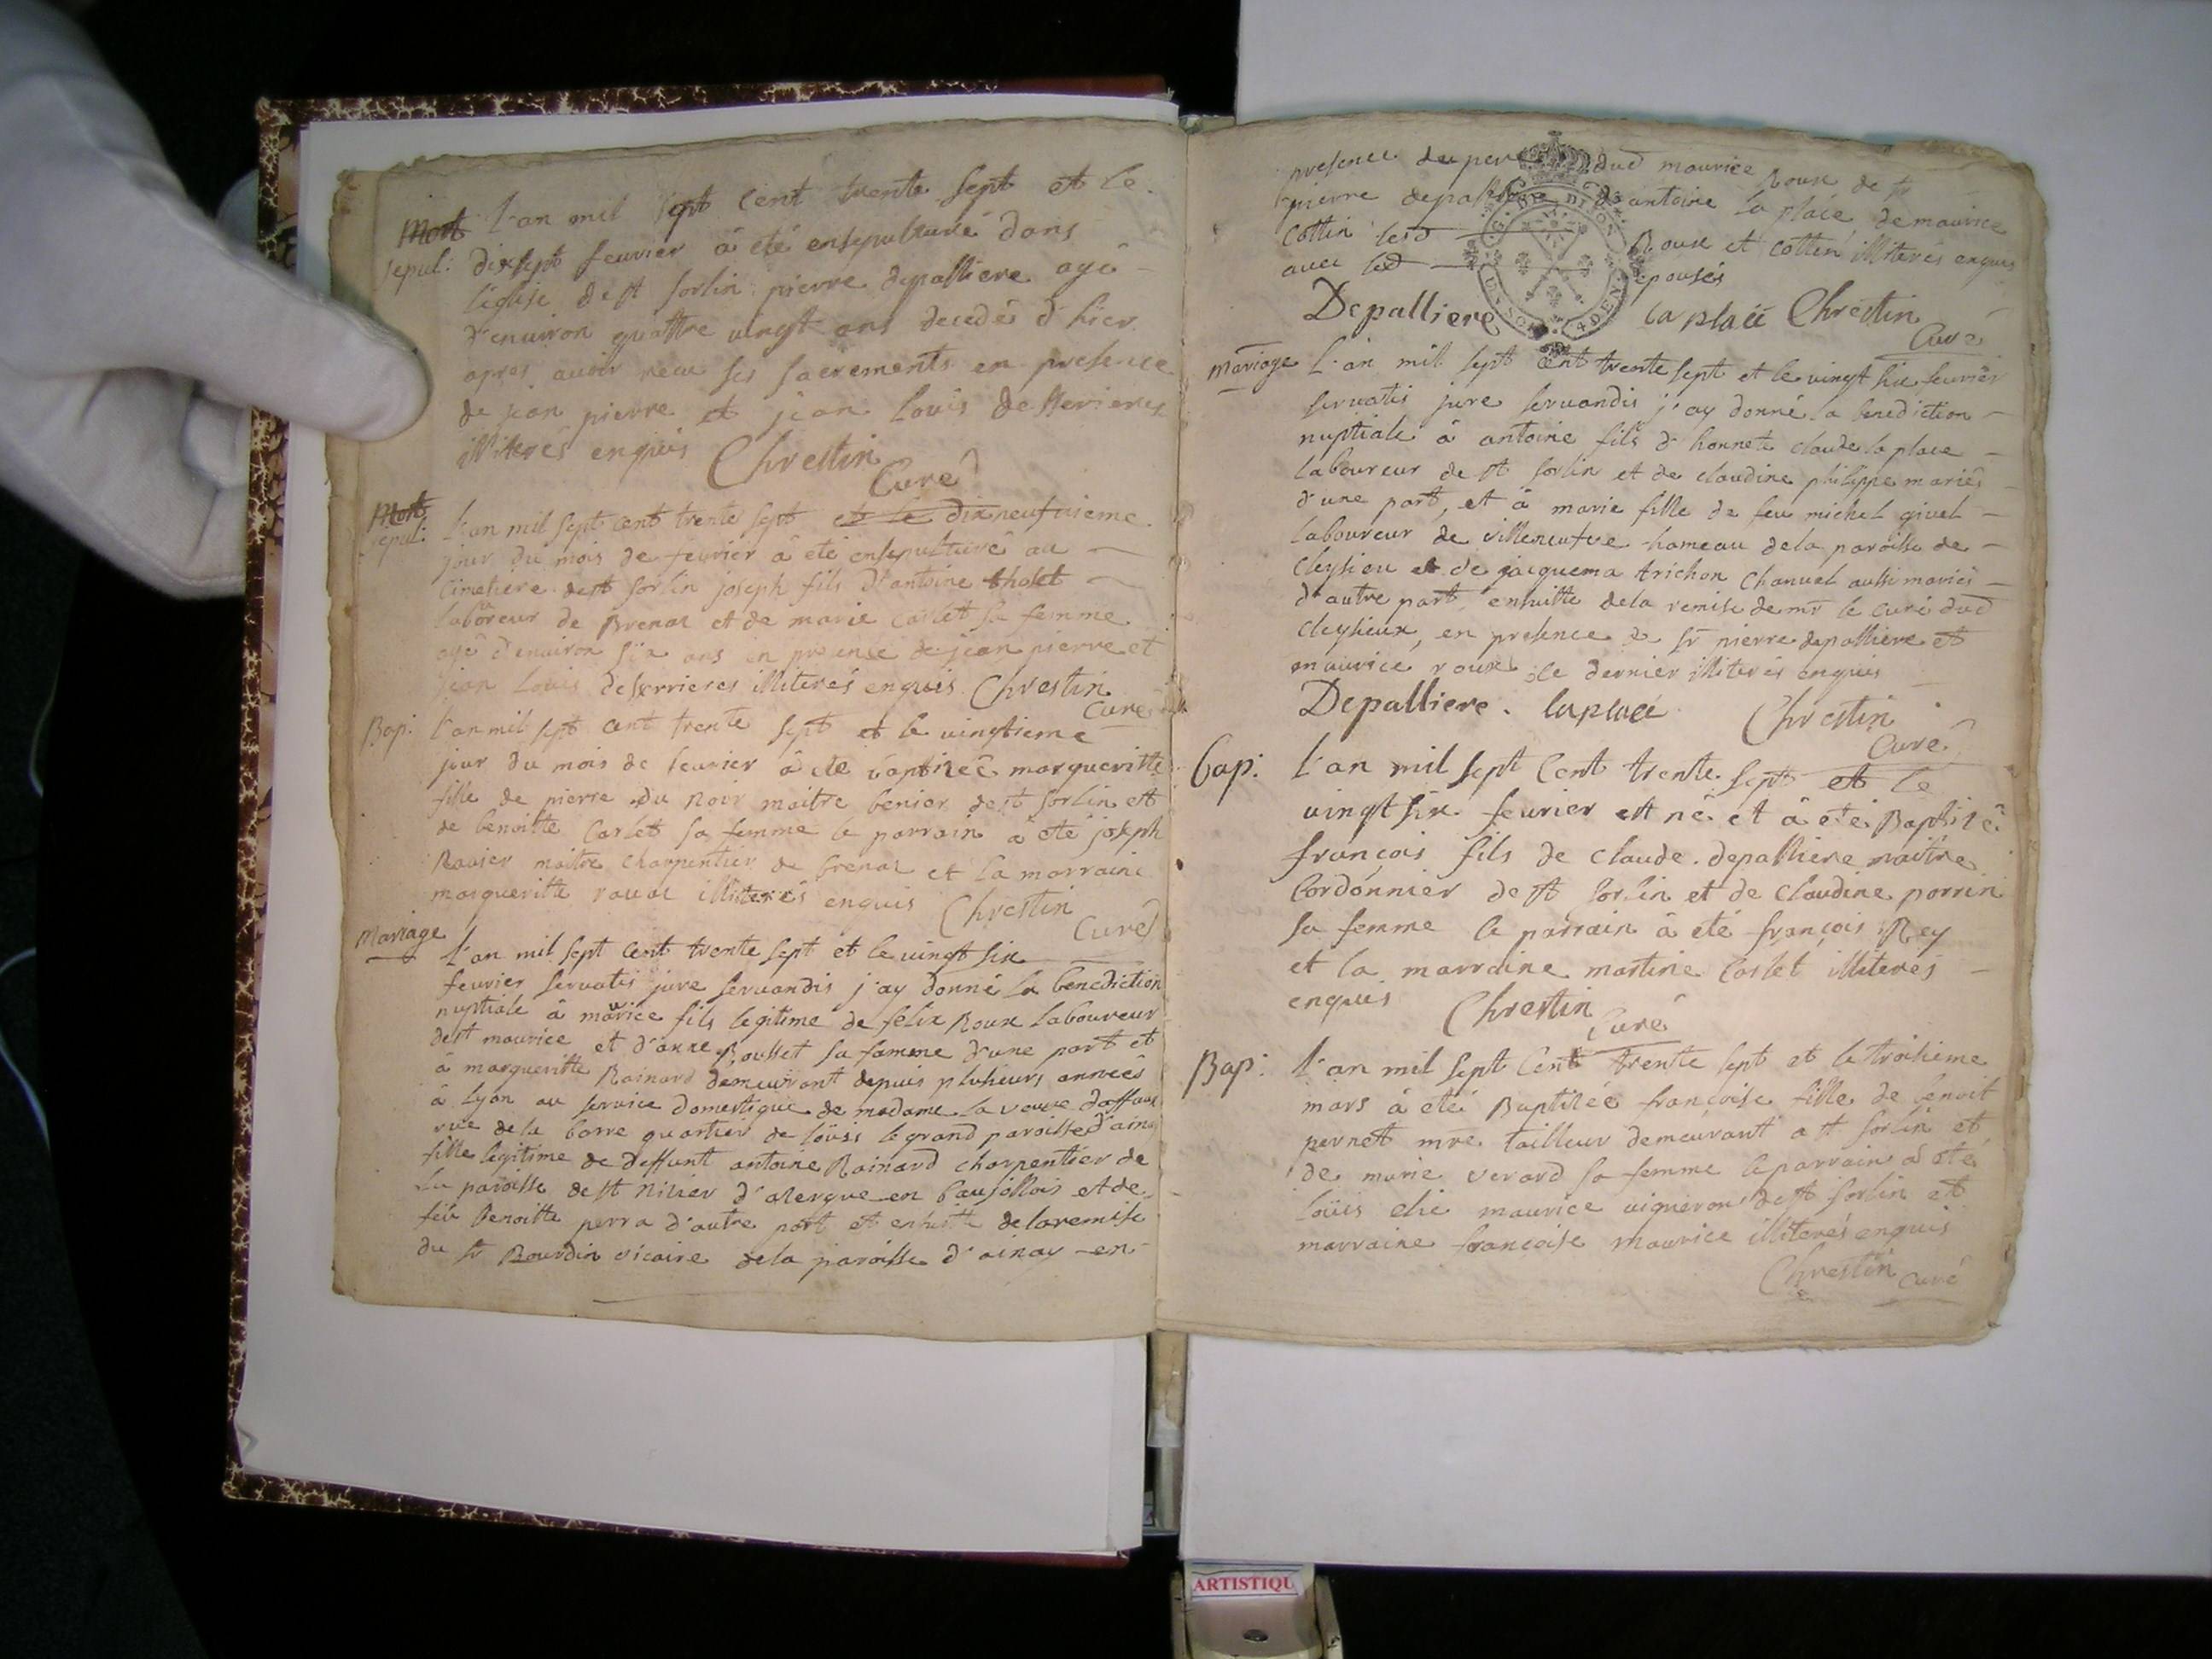 Mort L'an mil sept cent trente sept et le
sepul: dixsept feurier â eté ensepulturé dans
l'eglise de st sorlin pierre depalliere agé
d'enuiron quattre vingt ans decedé d'hier
apres auoir receu ses sacrements en presence
de jean pierre et jean Louis desserieres
illiterés enquis Chrestin
Curé
Mort
sepul: L'an mil sept cent trente sept et le dixneufuieme
jour du mois de feurier â eté ensepulturé au
Cimetiere de st sorlin joseph fils d'antoine tholet
laboureur de Brenaz et de marie Carlet sa femme
agé d'enuiron six ans en presence de jean pierre et
jean Louis deserrieres illiterés enquis Chrestin
Curé
Bap: L'an mil sept cent trente sept et le vingtieme
jour du mois de feurier â eté baptizeé margueritte
fille de pierre du Noir maitre benier de st sorlin et
de benoitte Carlet sa femme le parrain â eté joseph
Rauier maitre charpentier de brenaz et la marraine
margueritte rauaz illiterés enquis Chrestin
Curé
Mariage
L'an mil sept cent trente sept et le vingt six
feurier seruatis jure seruandis j'ay donné la benediction
nuptiale â maurice fils legitime de felix Roux laboureur
de st maurice et d'anne Rousset sa famme d'une part et
â margueritte Rainard demeurant depuis plusieurs anneés
â Lyon au seruice domestique de madame la veuve daffaux
rue de la barre quartier de loüis le grand paroisse d'ainay
fille legitime de deffunt antoine Rainard charpentier de
la paroisse de st Nizier d'azergue en baujollois et de
feü benoitte perra d'autre part et ensuitte de la remise
du sr Bourdin vicaire de la paroisse d'ainay en
presence du pere dud maurice Roux de sr
pierre depalliere d'antoine la place de maurice
Cottin lesd Roux et cottin illiterés enquis
auec led epousés
Depalliere la place Chrestin
Curé
Mariage L'an mil sept cent trente sept et le vingt six feurier
seruatis jure seruandis j'ay donné la benediction
nuptiale â antoine fils d'honnete claude la place
laboureur de st sorlin et de claudine philippe mariés
d'une part, et â marie fille de feu michel givel
laboureur de villeneufve hameau de la paroisse de
Cleysieu et de jacquema trichon Chanuel aussi mariés
d'autre part ensuitte de la remise de mr le curé dud
Cleysieux, en presence de sr pierre depalliere et
maurice roux le dernier illiterés enquis
Depalliere. laplace Chrestin
Curé
Bap: L'an mil sept cent trente sept et le
vingt six feurier est né et â eté Baptizé
françois fils de claude depalliere maitre
Cordonnier de st sorlin et de Claudine perrin
sa femme le parrain â eté françois Rey
et la marraine martine Carlet illiterés
enquis Chrestin
Curé
Bap: L'an mil sept cent trente sept et le troisieme
mars â eté Baptizée françoise fille de benoit
pernet mre tailleur demeurant a st sorlin et
de marie verard sa femme le parrain â eté
loüis elie maurice vigneron de st sorlin et
marraine françoise maurice illiterés enquis
Chrestin Curé
ARTISTIQU